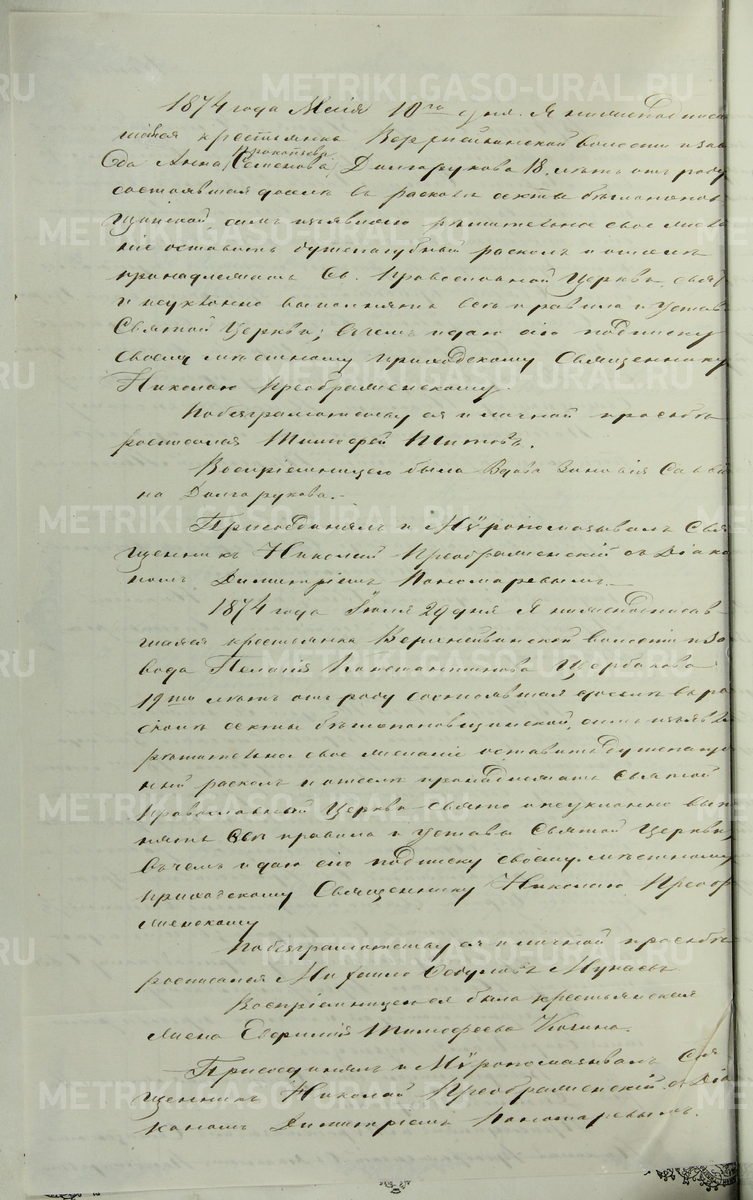 1874 года Мая 10го дня. Я нижеподписа
вшаяся крестьянка Верхнейвинской волости и заво
да Анна Прокопьева (Семенова) Долгорукова 18 летъ отъ роду
состоявшая доселѣ въ расколѣ секты бѣглопопов
щинской, симъ изъявляю рѣшительное свое жела
ніе оставить душепагубный расколъ и отселѣ
принадлежать Св. Православной Церкви, свято
и неуклонно выполнять всѣ правила и Уставы
Святой Церкви; въ чемъ и даю сію подписку
своему мѣстному приходскому Священнику
Николаю Преображенскому.
По безграмотству ея и личной просьбѣ
росписался Тимофей Титовъ.
Воспріемницею была Вдова Зиновія Савви
на Долгорукова.
Присоединялъ и Мѵропомазывалъ Свя
щенникъ Николай Преображенскій съ Діако
номъ Димитріемъ Пономаревымъ.
1874 года Іюля 29 дня Я нижеподписав
шаяся крестьянка Верхнейвинской волости и за
вода Пелагія Константинова Щербакова
19ти лѣтъ отъ роду состоявшая доселѣ въ ра
сколѣ секты бѣглопоповщинской, симъ изъявляю
рѣшительное свое желаніе оставить душепагуб
ный расколъ и отселѣ принадлежать Святой
Православной Церкви свято и неуклонно выпол
нять всѣ правила и Уставы Святой Церкви,
въ чемъ и даю сію подписку своему мѣстному
приходскому Священнику Николаю Преобра
женскому
По безграмотству ея и личной просьбѣ
росписался Михаило
Воспріемницей ея была крестьянская
жена Евфимія Тимофеева
Присоединялъ и Мѵропомазывалъ Свя
щенникъ Николай Преображенскій съ Діа
кономъ Димитріемъ Пономаревымъ.
METRIKI.GASO-URAL.RU